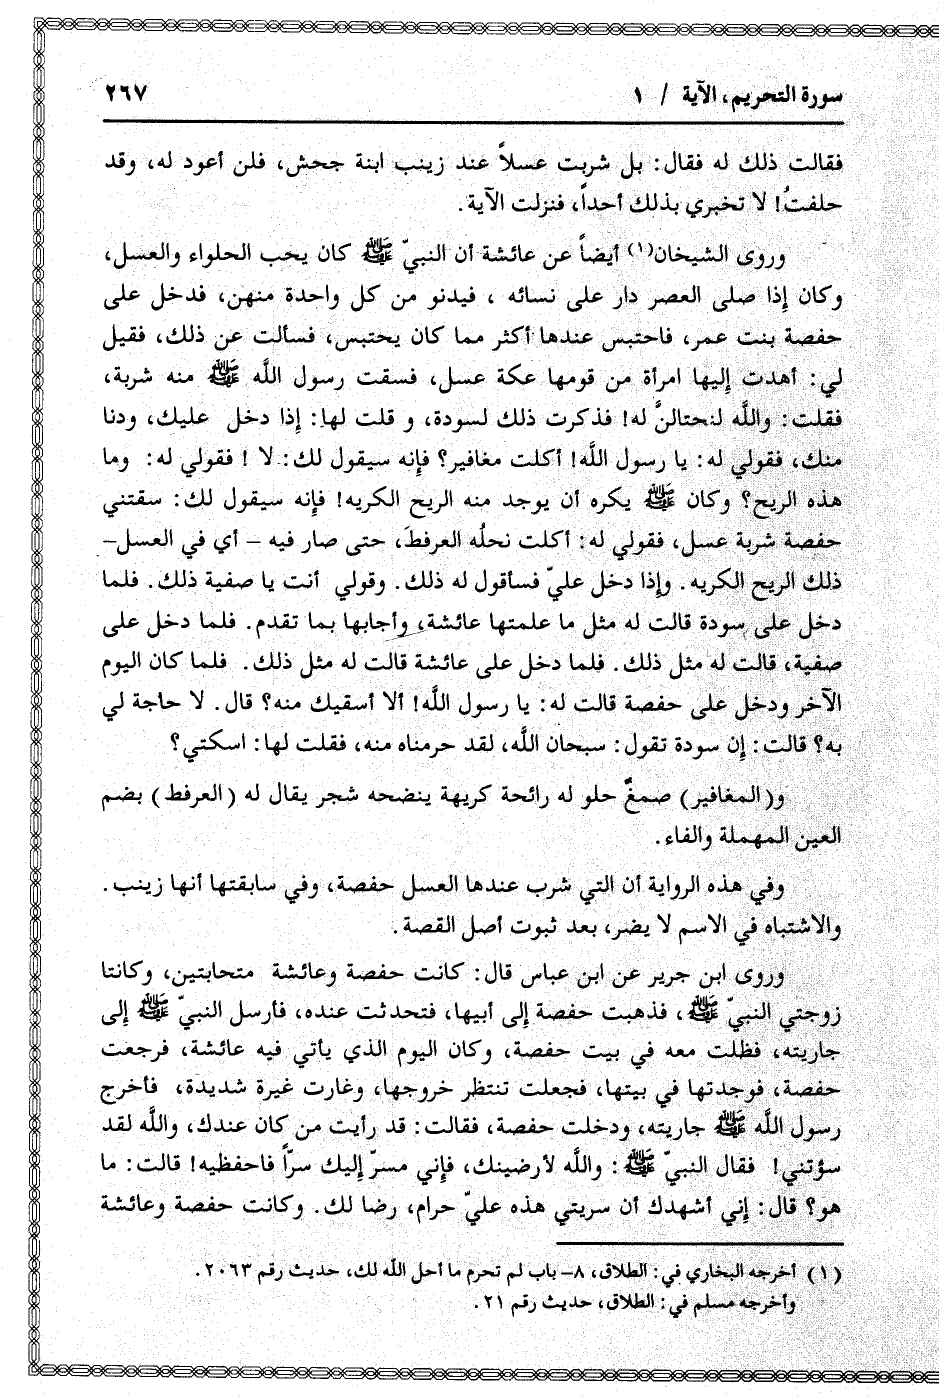 سورة التحريم، الآية / ١
٢٦٧
فقالت ذلك له فقال: بل شربت عسلاً عند زينب ابنة جحش، فلن أعود له، وقد
حلفتُ! لا تخبري بذلك أحداً، فنزلت الآية.
وروى الشيخان(١) أيضاً عن عائشة أن النبيّ ﷺ كان يحب الحلواء والعسل،
وكان إذا صلى العصر دار على نسائه ، فيدنو من كل واحدة منهن، فدخل على
حفصة بنت عمر، فاحتبس عندها أكثر مما كان يحتبس، فسألت عن ذلك، فقيل
لي: أهدت إليها امرأة من قومها عكة عسل، فسقت رسول اللَّه ﷺ منه شربة،
فقلت: واللَّه لنحتالنَّ له! فذكرت ذلك لسودة، و قلت لها: إذا دخل عليك، ودنا
منك، فقولي له: يا رسول اللَّه! أكلت مغافير؟ فإنه سيقول لك: لا ! فقولي له: وما
هذه الريح؟ وكان ﷺ يكره أن يوجد منه الريح الكريه! فإنه سيقول لك: سقتني
حفصة شربة عسل، فقولي له: أكلت نحلُه العرفطَ، حتى صار فيه – أي في العسل–
ذلك الريح الكريه. وإذا دخل عليّ فسأقول له ذلك. وقولي أنت يا صفية ذلك. فلما
دخل على سودة قالت له مثل ما علمتها عائشة، وأجابها بما تقدم. فلما دخل على
صفية، قالت له مثل ذلك. فلما دخل على عائشة قالت له مثل ذلك. فلما كان اليوم
الآخر ودخل على حفصة قالت له: يا رسول اللَّه! ألا أسقيك منه؟ قال. لا حاجة لي
به؟ قالت: إن سودة تقول: سبحان اللَّه، لقد حرمناه منه، فقلت لها: اسكتي؟
و(المغافير) صمغٌ حلو له رائحة كريهة ينضحه شجر يقال له (العرفط) بضم
العين المهملة والفاء.
وفي هذه الرواية أن التي شرب عندها العسل حفصة، وفي سابقتها أنها زينب.
والاشتباه في الاسم لا يضر، بعد ثبوت أصل القصة.
وروى ابن جرير عن ابن عباس قال: كانت حفصة وعائشة متحابتين، وكانتا
زوجتي النبيّ ﷺ، فذهبت حفصة إلى أبيها، فتحدثت عنده، فأرسل النبيّ ﷺ إلى
جاريته، فظلت معه في بيت حفصة، وكان اليوم الذي يأتي فيه عائشة، فرجعت
حفصة، فوجدتها في بيتها، فجعلت تنتظر خروجها، وغارت غيرة شديدة، فأخرج
رسول اللَّه ﷺ جاريته، ودخلت حفصة، فقالت: قد رأيت من كان عندك، واللَّه لقد
سؤتني! فقال النبيّ ﷺ: واللَّه لأرضينك، فإني مسرّ إليك سرّاً فاحفظيه! قالت: ما
هو؟ قال: إني أشهدك أن سريتي هذه عليّ حرام، رضا لك. وكانت حفصة وعائشة
(١) أخرجه البخاري في: الطلاق، ٨– باب لم تحرم ما أحل اللَّه لك، حديث رقم ٢٠٦٣.
وأخرجه مسلم في: الطلاق، حديث رقم ٢١.